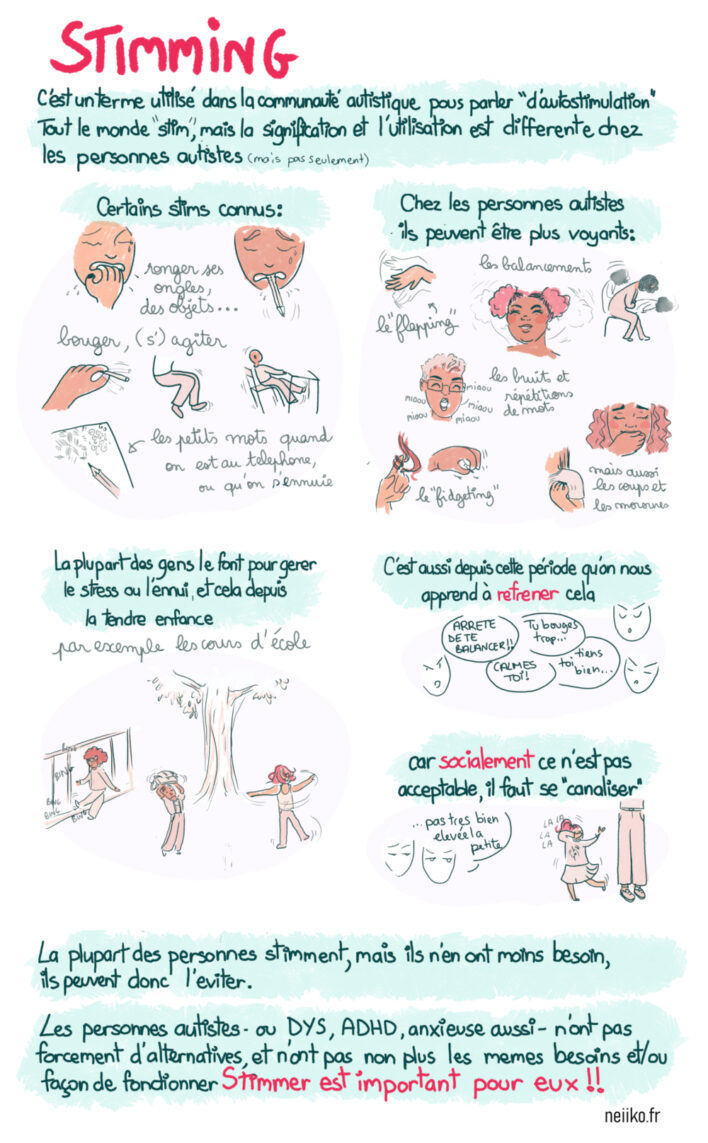 STIMMING
C'est un terme utilisé dans la communauté autistique pous parler "d'autostimulation"
Tout le monde "stim", mais la signification et l'utilisation est differente chez
les personnes autistes (mais pas seulement)
Certains stims connus:
ronger ses
ongles,
des objets...
bouger, (s') agiter
les petits mots quand
on est au telephone,
ou qu'on s'ennuie
Chez les personnes autistes
ils peuvent être plus voyants:
les balancements
le "flapping"
les bruits et
répétitions
de mots
miaou
miaou
miaou
miaou
miaou
le "fidgeting"
mais aussi
les coups et
les morsures
La plupart des gens le font pour gerer
le stress ou l'ennui, et cela depuis
la tendre enfance
par exemple les cours d'école
BING
BING
BING
BING
BING
C'est aussi depuis cette période qu'on nous
apprend à refrener cela
ARRETE
DE TE
BALANCER!!
Tu bouges
trop...
CALMES
TOI!
tiens
toi
bien...
car socialement ce n'est pas
acceptable, il faut se "canaliser"
...pas tres bien
elevée la
petite
LA LA
LA
LA
La plupart des personnes stimment, mais ils n'en ont moins besoin,
ils peuvent donc l'eviter.
Les personnes autistes - ou DYS, ADHD, anxieuse aussi - n'ont pas
forcement d'alternatives, et n'ont pas non plus les memes besoins et/ou
façon de fonctionner Stimmer est important pour eux !!
neiiko.fr